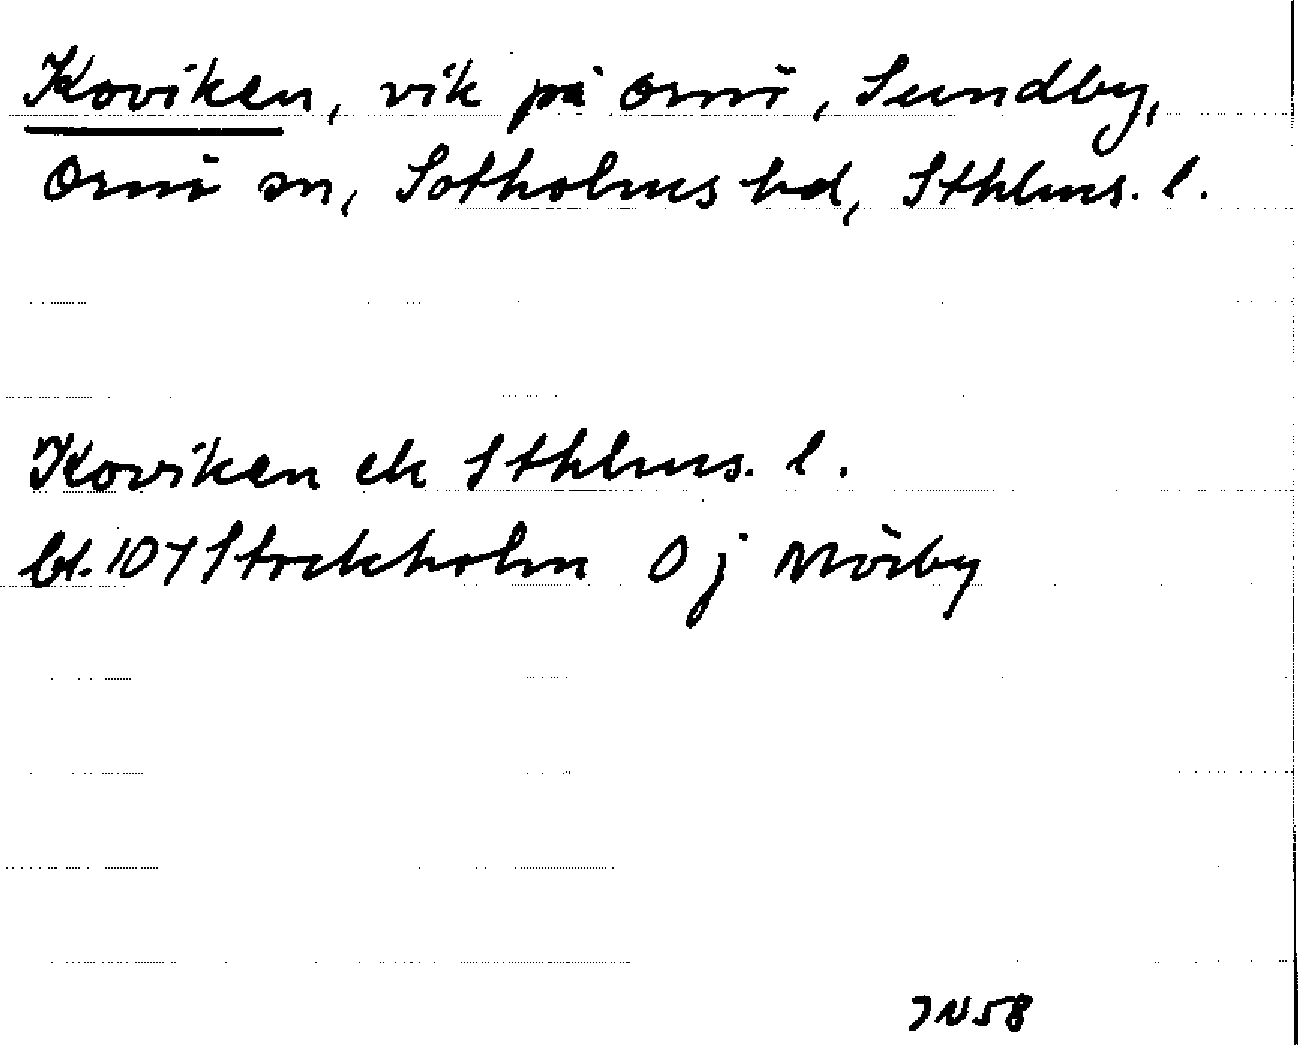 Koviken, vik på Ornö, Sundby,
Ornö sn, Sotholms hd, Sthlms. l.
Koviken ek Sthlms. l.
bl. 107 Stockholm O j Mörby
JN 58